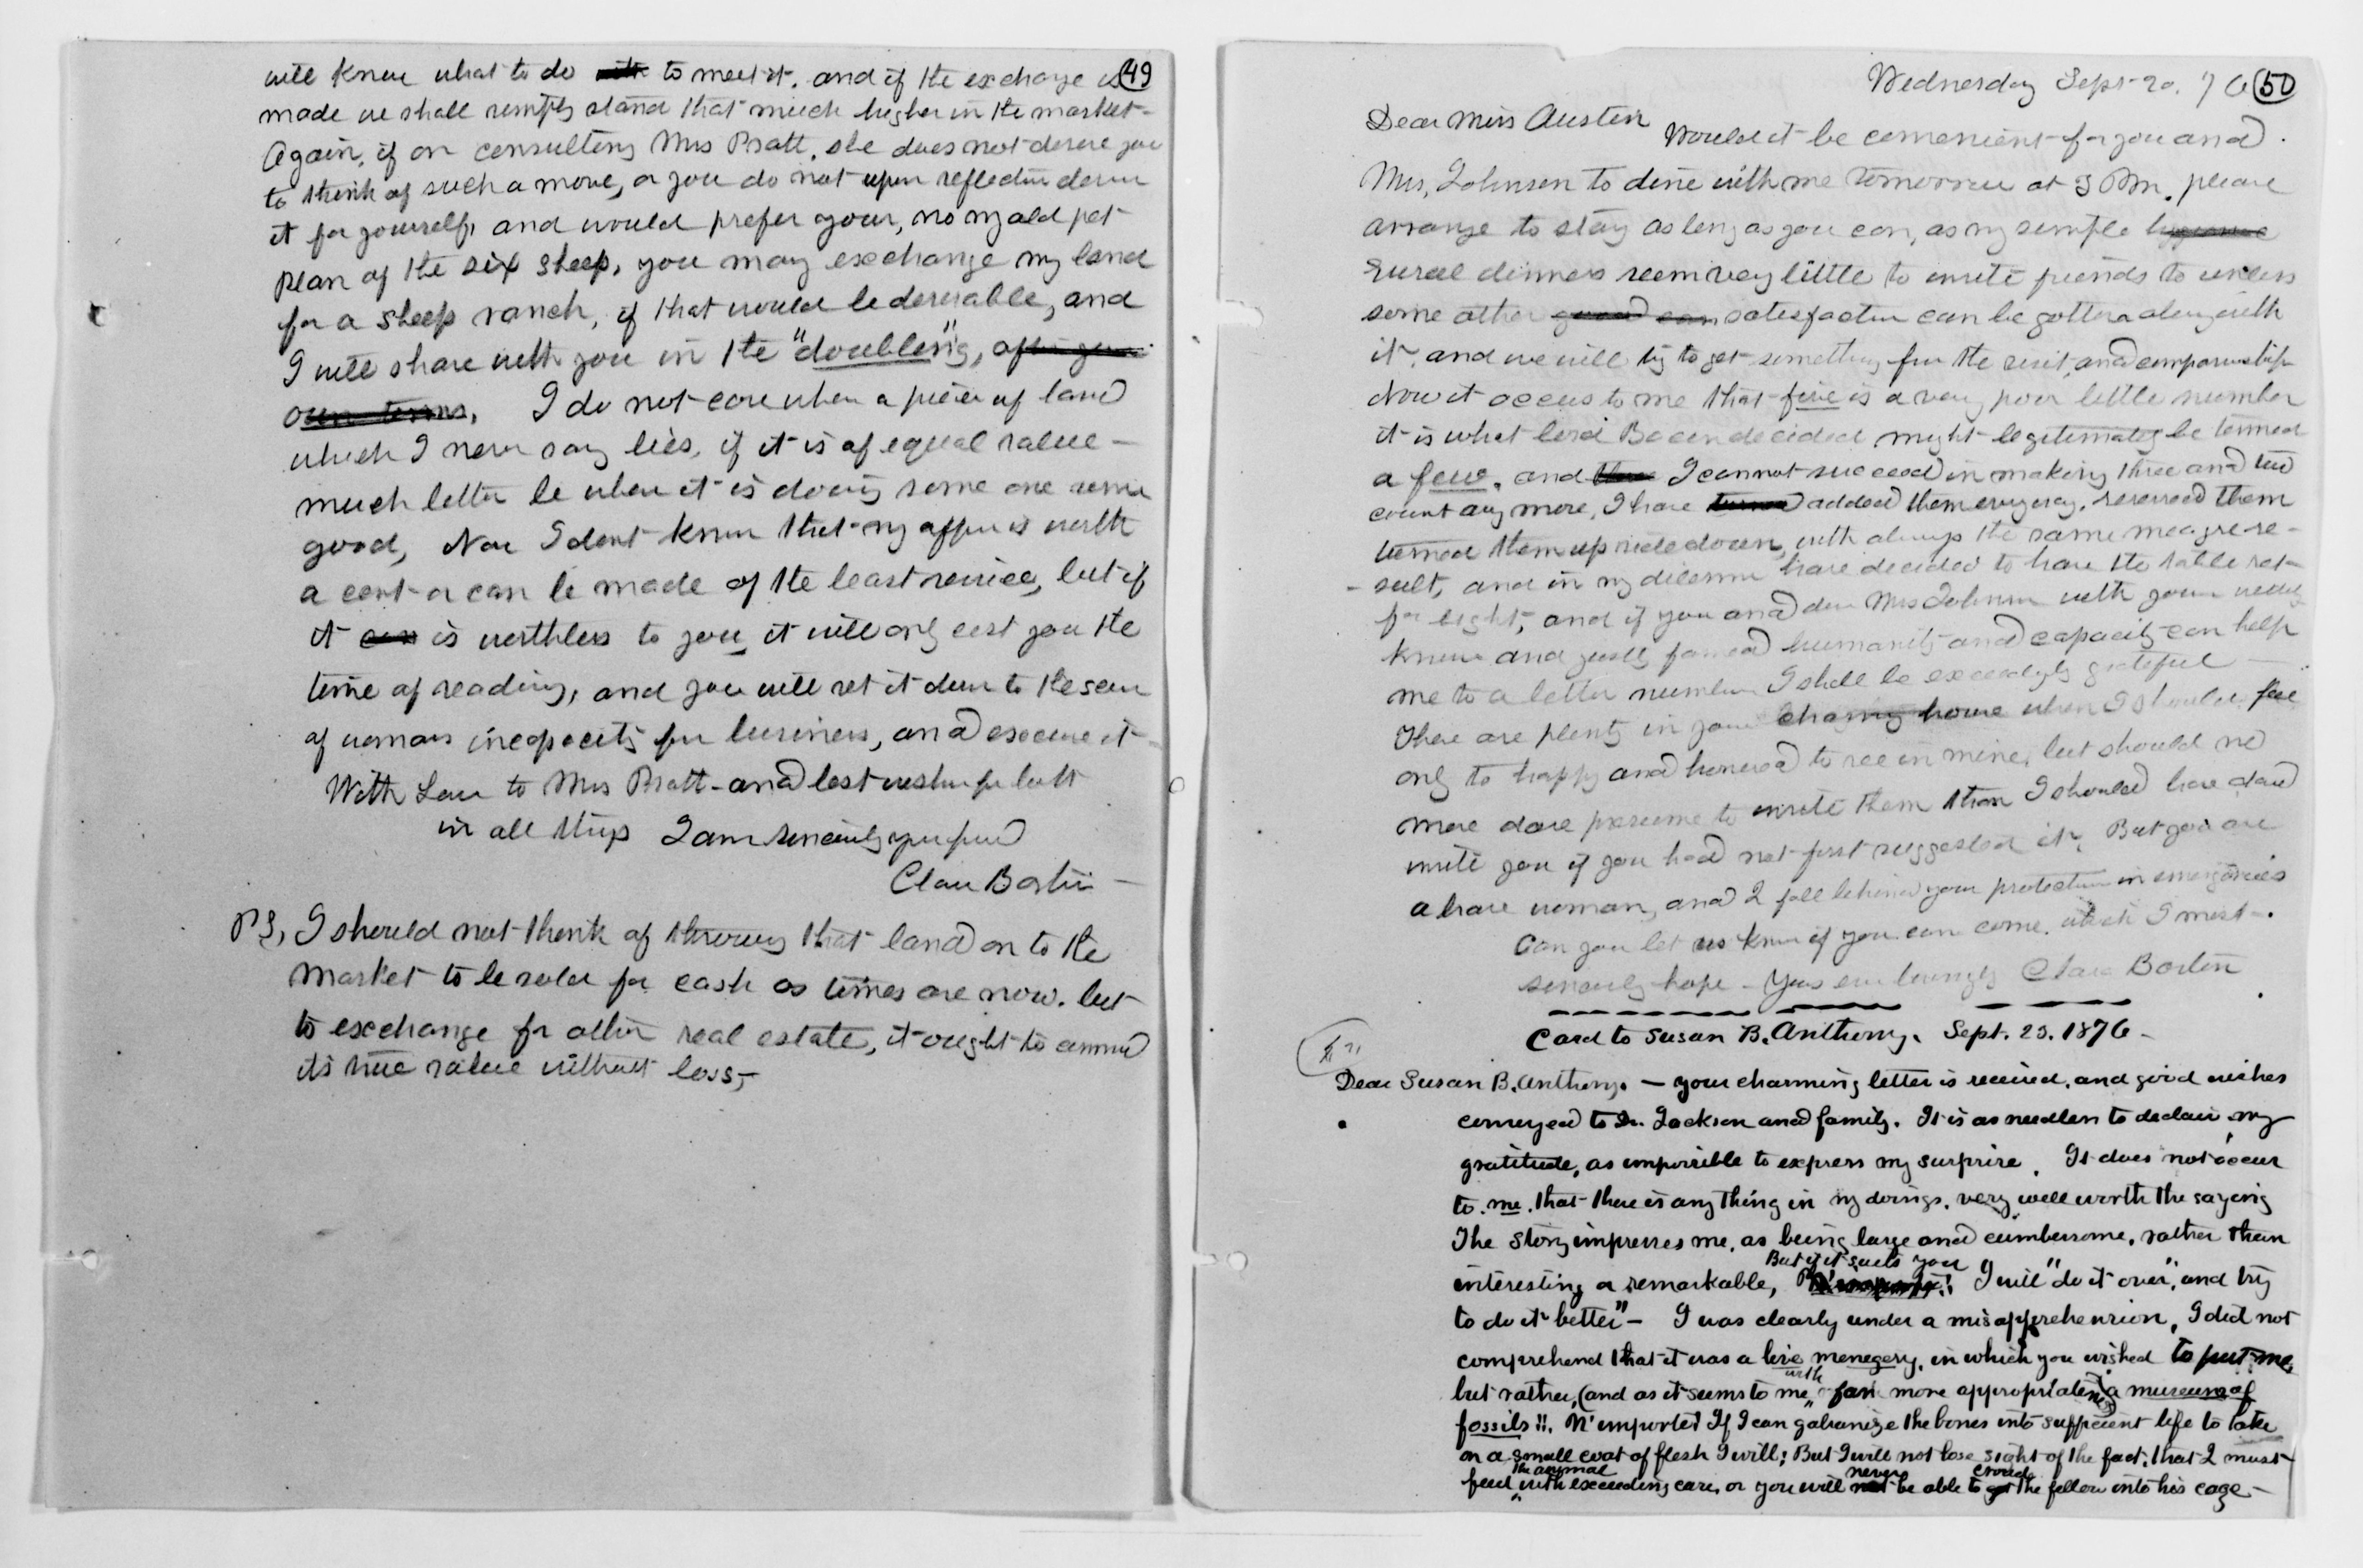 49
will know what to do with to meet it. and if the exchange is
made we shall simply stand that much higher in the market -
Again, if on consulting Mrs Pratt, she does not desire you
to think of such a move, or you do not upon reflection desire
it for yourself, and would prefer your, no my old pet
plan of the six sheep, you may exchange my land
for a sheep ranch, if that would be desirable, and
I will share with you in the "doubling", after your
own terms. I do not care when a piece of land
which I never saw lies, if it is of equal value -
much better be where it is doing some one some
good, Now I dont know that my offer is worth
a cent or can be made of the least service, but if
it is worthless to you, it will only cost you the
time of reading, and you will set it down to the score
of womans incapacity for business, and excuse it -
With Love to Mrs Pratt - and best wishes for both
in all things I am sincerely your friend
Clara Barton -
PS, I should not think of throwing that land on to the
market to be sold for cash as times are now. but
to exchange for other real estate, it ought to command
its true value without loss,-
50
Wednesday Sept 20. 76
Dear Miss Austin
Would it be convenient for you and
Mrs, Johnson to dine with me tomorrow at 3 P.M. please
arrange to stay as long as you can, as my simple
rural dinners seem very little to invite friends to unless
some other good can satisfaction can be gotten along with
it, and we will try to get something from the visit, and companionship
Now it occurs to me that five is a very poor little number
it is what lord Bacon decided might legitimately be termed
a few, and I cannot succeed in making three and two
count any more, I have turned added them every way, reversed them
turned them up side down, with always the same meagre re-
- sult, and in my dilemma have decided to have the table set
for eight, and if you and dear Mrs Johnson with your well
known and justly famed humanity and capacity can help
me to a better number I shall be exceedingly grateful -
There are plenty in your charming house whom I should feel
only to happy and honored to see in mine, but should no
more dare presume to invite them than I should have dared
invite you if you had not first suggested it, But you are
a brave woman, and I fall behind your protection in emergencies
Can you let us know if you can come. which I most
sincerely hope - Yours ever lovingly Clara Barton
Card to Susan B. Anthony. Sept. 23. 1876 -
Dear Susan B. Anthony. - your charming letter is received, and good wishes
conveyed to Dr. Jackson and family. It is as needless to declare my
gratitude, as impossible to express my surprise. It does not occur
to me. that there is anything in my doings. very well worth the saying
The story impresses me, as being large and cumbersome, rather than
But if it suits you
interesting or remarkable, I will "do it over", and try
to do it better" - I was clearly under a misapprehension, I did not
comprehend that it was a live menegery, in which you wished to put me,
with
but rather, (and as it seems to me far more appropriateness) a museum of
fossils!!. N'importe! If I can galvanize the bones into sufficient life to take
on a small coat of flesh I will; But I will not lose sight of the fact, that I must
the animal never crowd
feed with exceeding care, or you will not be able to get the fellow into his cage -